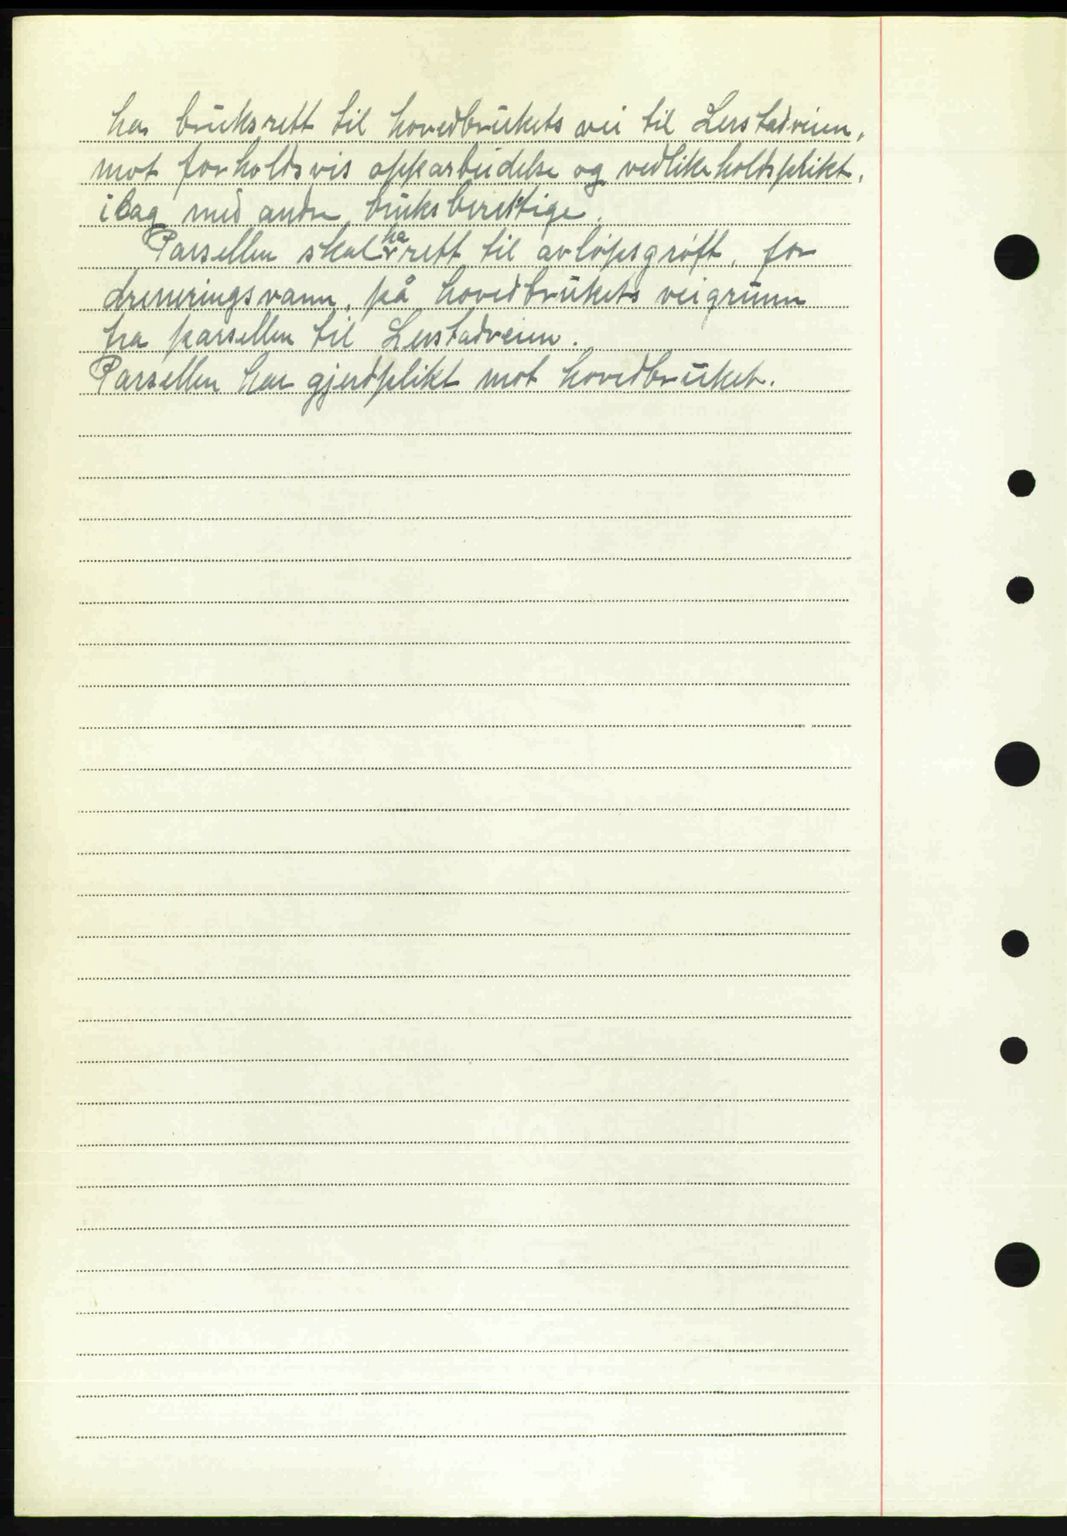 har bruksrett til hovedbrukets vei til Lerstadveien,
mot forholdsvis opparbeidelse og vedlikeholdsplikt,
ilag med andre bruksberettige.
Parsellen skal ha rett til avløpsgrøft, for
dreneringsvann, på hovedbrukets veigrunn
fra parsellen til Lerstadveien.
Parsellen har gjerdplikt mot hovedbruket.